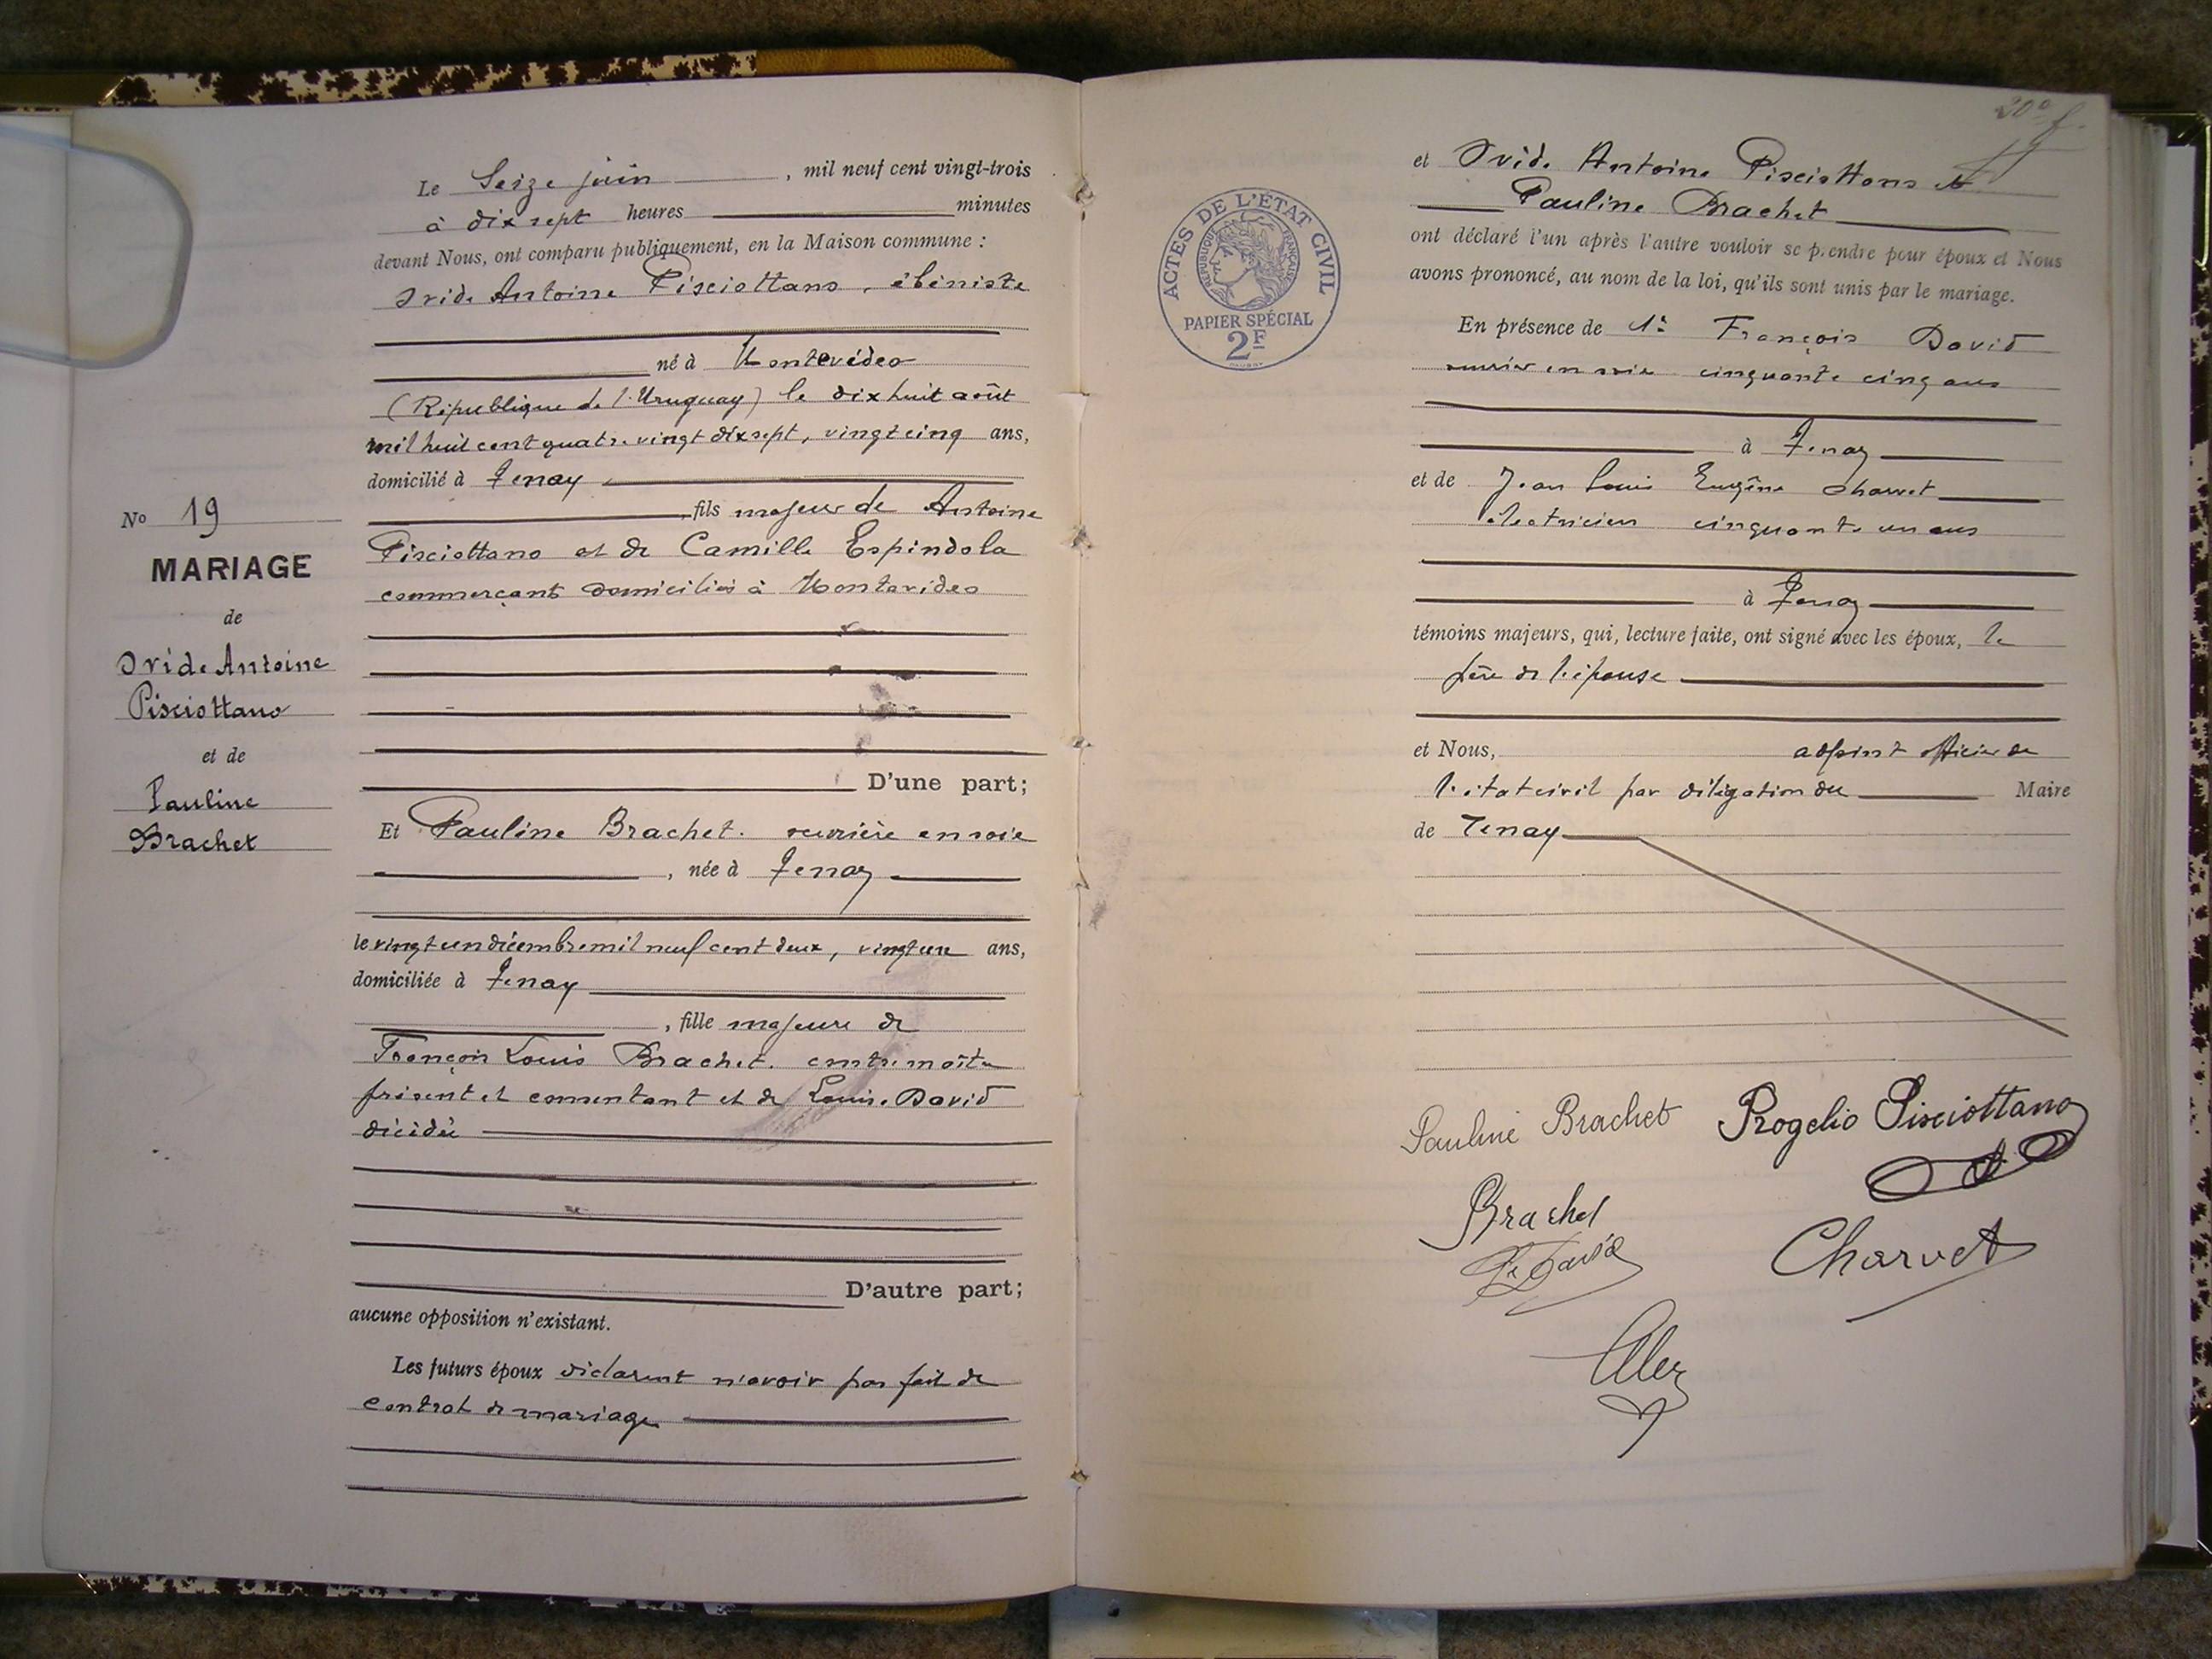 Le Seize juin, mil neuf cent vingt-trois
à dix sept heures minutes
devant Nous, ont comparu publiquement, en la Maison commune :
Ovide Antoine Pisciottano, ébéniste
né à Montevideo
(République de l'Uruguay) le dix huit août
mil huit cent quatre vingt dix sept, vingt cinq ans,
domicilié à Tenay
fils majeur de Antoine
Pisciottano et de Camille Espindola
commerçants domiciliés à Montevideo
D'une part;
No 19
MARIAGE
de
Ovide Antoine
Pisciottano
et de
Pauline
Brachet
Et Pauline Brachet. ouvrière en soie
, née à Tenay
le vingt un décembre mil neuf cent deux, vingt un ans,
domiciliée à Tenay
, fille majeure de
François Louis Brachet. contremaître
présent et consentant et de Louise David
décédée
D'autre part;
aucune opposition n'existant.
Les futurs époux déclarent n'avoir pas fait de
contrat de mariage
20e f.
et Ovide Antoine Pisciottano et
Pauline Brachet
ont déclaré l'un après l'autre vouloir se prendre pour époux et Nous
avons prononcé, au nom de la loi, qu'ils sont unis par le mariage.
ACTES DE L'ÉTAT CIVIL
RÉPUBLIQUE FRANÇAISE
PAPIER SPÉCIAL
2F
En présence de François David
ouvrier en soie cinquante cinq ans
à Tenay
et de Jean Louis Eugène Charvet
électricien cinquante un ans
à Tenay
témoins majeurs, qui, lecture faite, ont signé avec les époux, le
père de l'épouse
et Nous, adjoint officier de
l'état civil par délégation du Maire
de Tenay
Pauline Brachet Rogelio Pisciottano
Brachet
David
Charvet